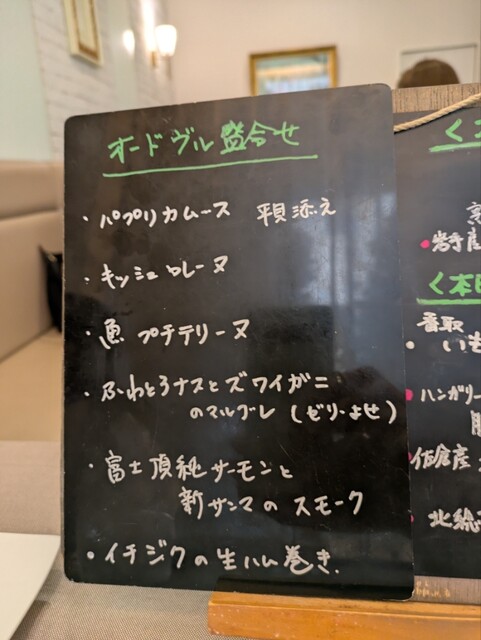 オードヴル盛合せ
・パプリカムース 平貝添え
・キッシュロレーヌ
・魚 プチテリーヌ
・ふわとろナスとズワイガニ
のマルブレ (ゼリーよせ)
・富士頂純サーモンと
新サンマのスモーク
・イチジクの生ハム巻き.
く
・岩手産
く本日
香取
・いも
・ハンガリー
・佐倉産
・北総